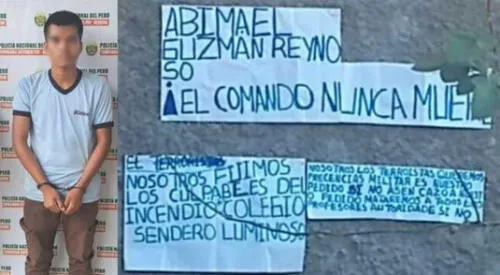 POLICÍA NACIONAL DEL PERÚ
ABIMAEL
GUZMÁN REYNO
SO
¡EL COMANDO NUNCA MUE
EL TERRORISTAS
NOSOTROS FUIMOS
LOS CULPABELES DEL
INCENDIO COLEGIO
SENDERO LUMINOSO
NOSOTROS LOS TERROISTAS QUEREMOS
PRECENCIAS MILITAR ES NUESTRO
PEDIDO SI NO HACEN CAZO A ESTE
PEDIDO MATAREMOS A TODOS
PROFESORES AUTORIDADE SI NO